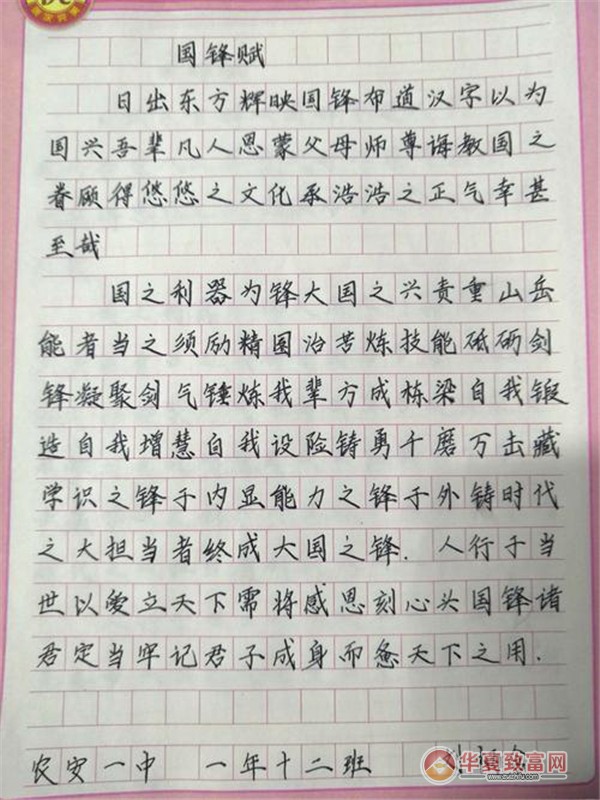 国锋赋
日出东方辉映国锋布道汉字以为
国兴吾辈凡人恩蒙父母师尊诲教国之
眷顾得悠悠之文化承浩浩之正气幸甚
至哉
国之利器为锋大国之兴责重山岳
能者当之须励精国治苦炼技能砥砺剑
锋凝聚剑气锤炼我辈方成栋梁自我锻
造自我增慧自我设险铸勇千磨万击藏
学识之锋于内显能力之锋于外铸时代
之大担当者终成大国之锋.人行于当
世以爱立天下需将感恩刻心头国锋诸
君定当牢记君子成身而惫天下之用.
农安一中 一年十二班
华夏致富网
www.zuizhifu.com